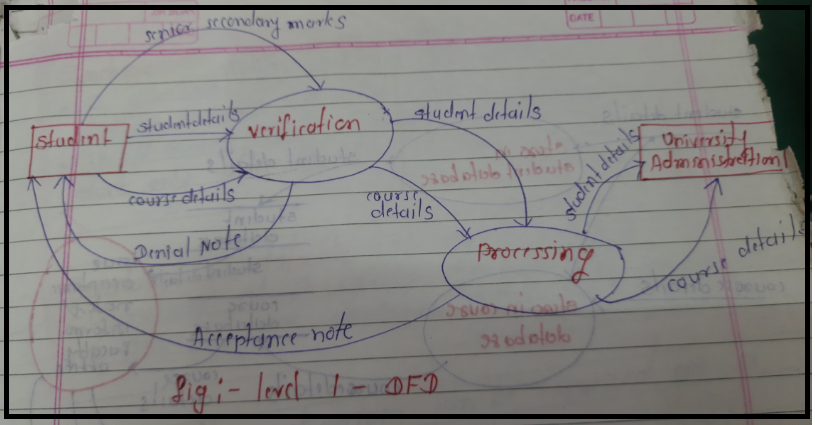 DATE
senior secondary marks
student details
student
verification
student details
University
Administration
student details
course details
course
details
Denial Note
Processing
course details
Acceptance note
fig :- level 1 - DFD